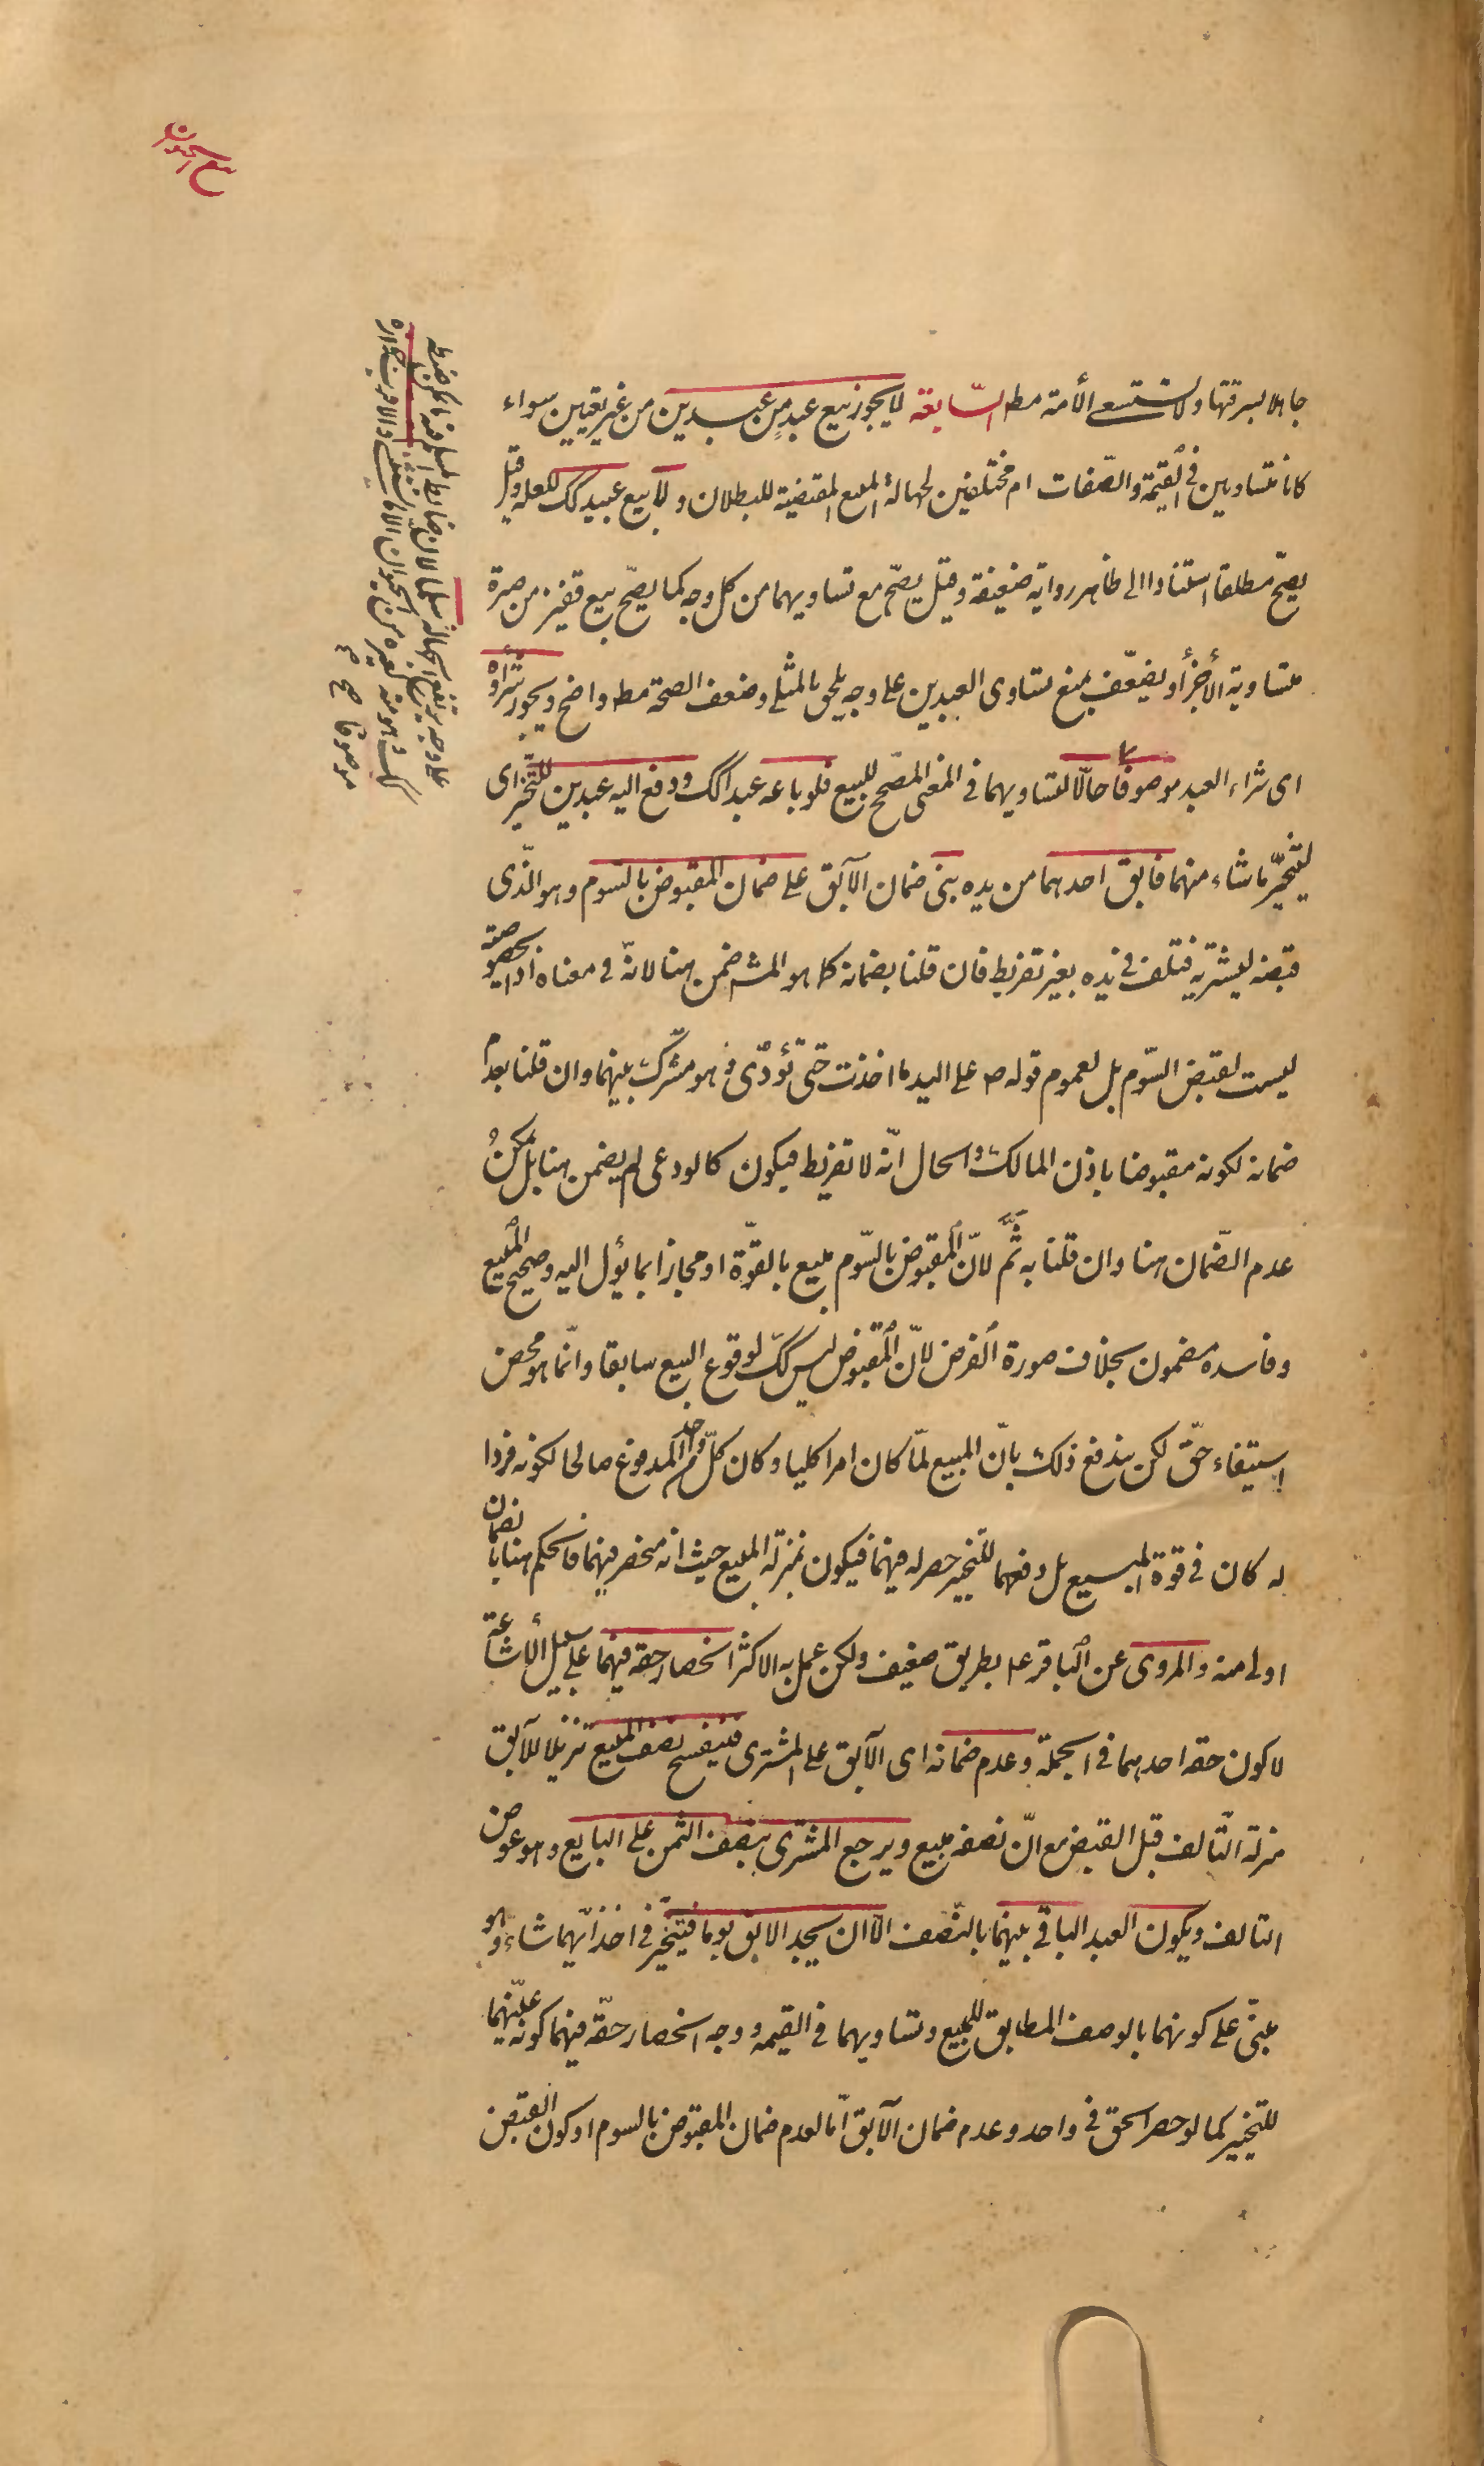 بيع الحيوان
جاهلا بسرقتها ولا تستسعى الأمة مط السّابعة لا يجوز بيع عبد من عبدين من غير تعيين سواء
كانا متساويين في القيمة والصّفات ام مختلفين لجهالة المبيع المقتضية للبطلان ولا بيع عبيد كك للعلة وقيل
يصحّ مطلقا استنادا الى ظاهر رواية ضعيفة وقيل يصحّ مع تساويهما من كل وجه كما يصحّ بيع قفيز من صبرة
متساوية الأجزاء ويضعّف بمنع تساوى العبدين على وجه يلحق بالمثلى وضعف الصحة مط واضح ويجوز شراؤه
اى شراء العبد موصوفا حالّا لتساويهما في المعنى المصحّح للبيع فلو باعه عبدا كك ودفع اليه عبدين للتّخيّر اى
ليتخيّر ما شاء منهما فابق احدهما من يده بنى ضمان الآبق على ضمان المقبوض بالسّوم وهو الّذى
قبضه ليشتريه فتلف في يده بغير تفريط فان قلنا بضمانه كما هو المشـ ضمن هنا لانّه في معناه اذ الخصوصية
ليست لقبض السّوم بل لعموم قوله ص على اليد ما اخذت حتّى تؤدّى وهو مشترك بينهما وان قلنا بعدم
ضمانه لكونه مقبوضا باذن المالك والحال انّه لا تفريط فيكون كالودعى لم يضمن هنا بل يمكن
عدم الضّمان هنا وان قلنا به ثمّ لانّ المقبوض بالسّوم مبيع بالقوّة او مجازا بما يؤل اليه وصحيح المبيع
وفاسده مضمون بخلاف صورة الفرض لانّ المقبوض ليس كك لوقوع البيع سابقا وانّما هو محض
استيفاء حقّ لكن يندفع ذلك بانّ المبيع لمّا كان امرا كليا وكان كلّ واحد من المدفوع صالحا لكونه فردا
له كان في قوة المبيع بل دفعهما للتخيير حصر له فيهما فيكون بمنزلة المبيع حيث انه منحصر فيهما فالحكم هنا بالضمان
اولى منه والمروى عن الباقر ع بطريق ضعيف ولكن عمل به الاكثر انحصار حقه فيهما على سبيل الأشاعة
لا كون حقه احدهما في الجملة وعدم ضمانه اى الآبق على المشترى فينفسخ نصف المبيع تنزيلا للآبق
منزلة التّالف قبل القبض مع انّ نصفه مبيع ويرجع المشترى بنصف الثمن على البايع وهو عوض
التالف ويكون العبد الباقى بينهما بالنّصف الّا ان يجد الابق يوما فيتخيّر في اخذ ايّهما شاء وهو
مبنىّ على كونهما بالوصف المطابق للمبيع وتساويهما في القيمة ووجه انحصار حقّه فيهما كونه عيّنهما
للتخيير كما لو حصر الحق في واحد وعدم ضمان الآبق امّا لعدم ضمان المقبوض بالسوم او كون القبض